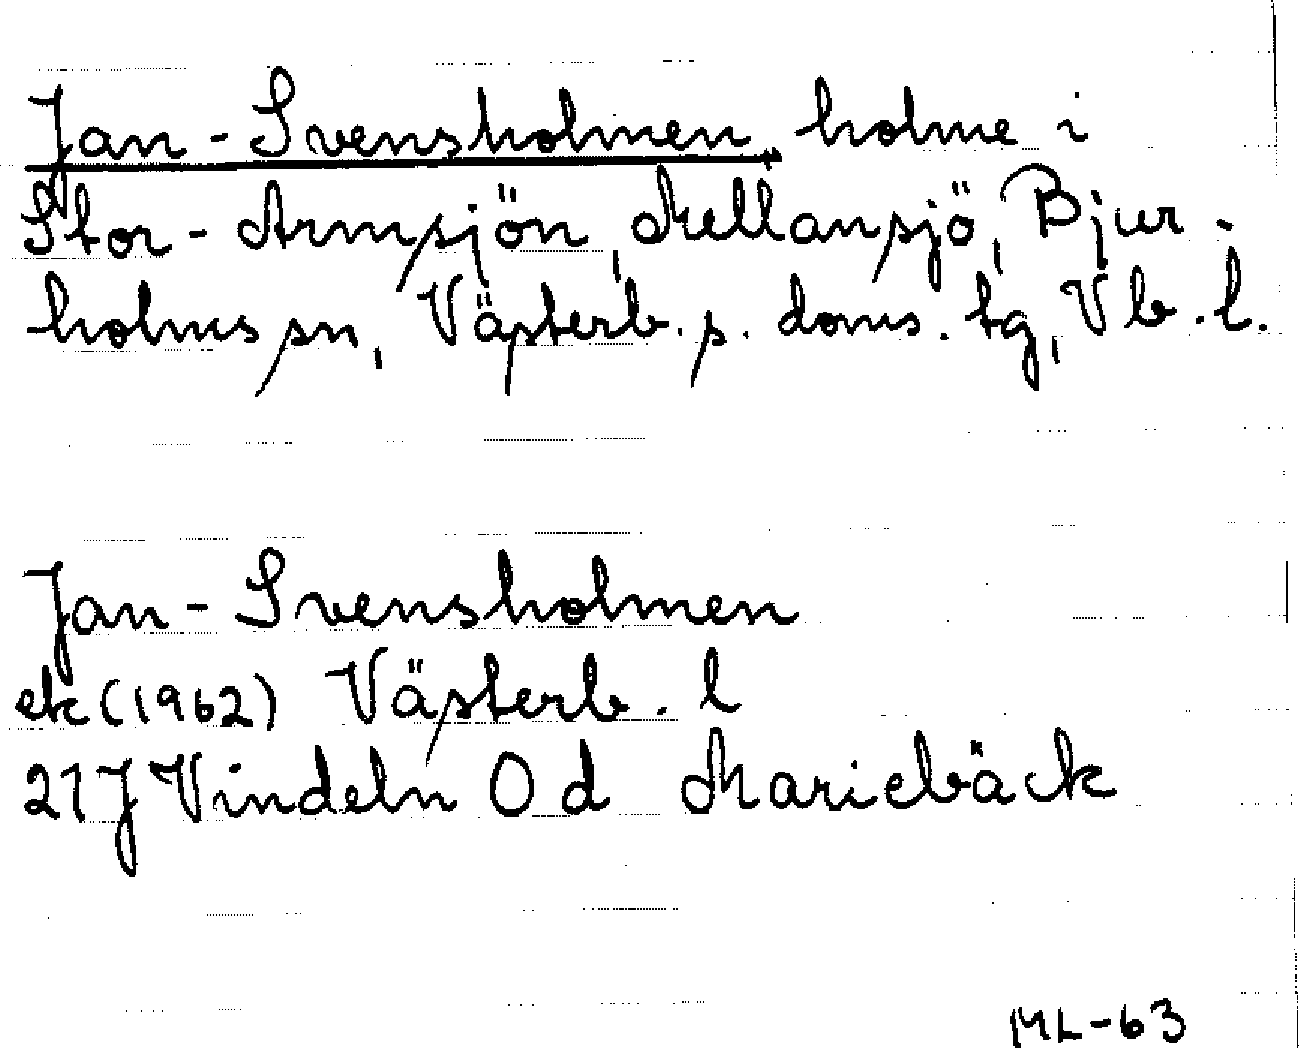 Jan-Svensholmen, holme i
Stor-Armsjön, Mellansjö, Bjur-
holms sn, Västerb. s. doms. tg, Vb. l.
Jan-Svensholmen
ek (1962) Västerb. l
21J Vindeln 0 d Mariebäck
ML-63